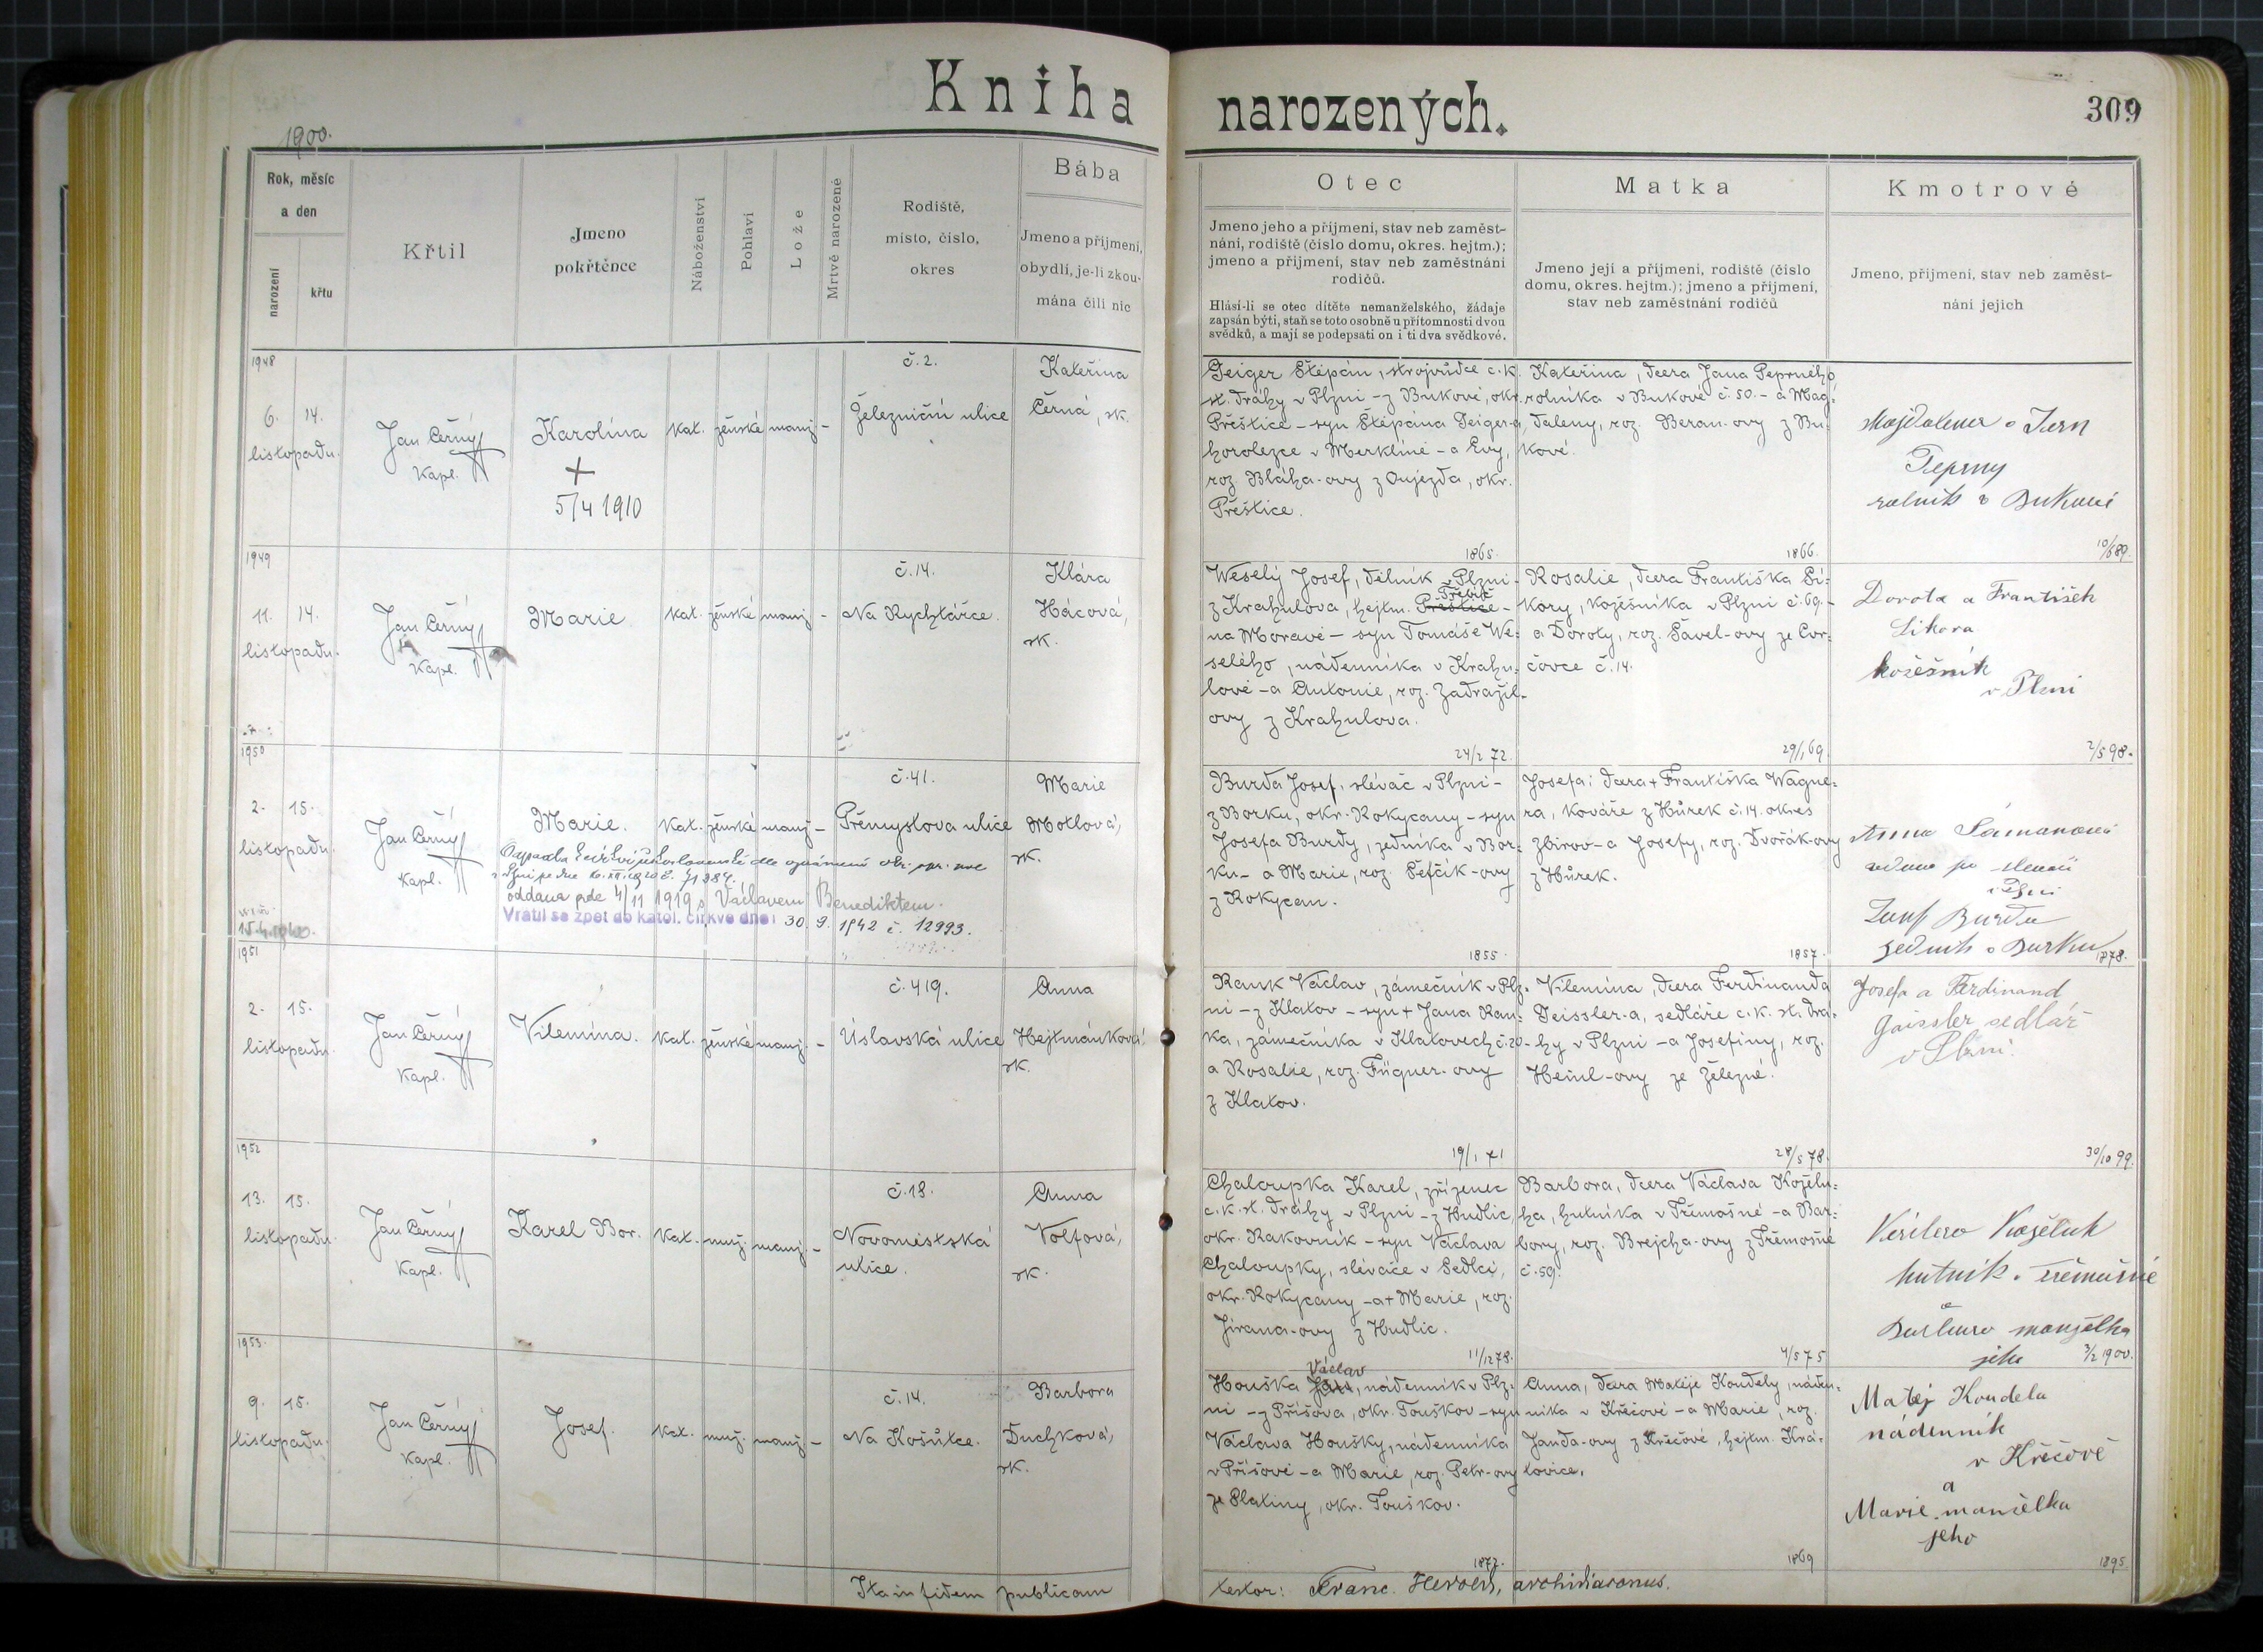 Kniha narozených.
309
1900.
Rok, měsíc
a den
narození
křtu
Křtil
Jmeno
pokřtěnce
Náboženství
Pohlaví
Lože
Mrtvě narozené
Rodiště,
místo, číslo,
okres
Bába
Jmeno a příjmení,
obydlí, je-li zkou-
mána čili nic
Otec
Jmeno jeho a příjmení, stav neb zaměst-
nání, rodiště (číslo domu, okres. hejtm.);
jmeno a příjmení, stav neb zaměstnání
rodičů.
Hlásí-li se otec dítěte nemanželského, žádaje
zapsán býti, staň se toto osobně u přítomnosti dvou
svědků, a mají se podepsati on i ti dva svědkové.
Matka
Jmeno její a příjmení, rodiště (číslo
domu, okres. hejtm.); jmeno a příjmení,
stav neb zaměstnání rodičů
Kmotrové
Jmeno, příjmení, stav neb zaměst-
nání jejich
1948
6. 14.
listopadu.
Jan Černý
Kapl.
Karolina
+
5/4 1910
kat. ženské manž. -
č. 2.
Železniční ulice
Kateřina
Černá, zk.
Geiger Štěpán, strojvůdce c. k.
st. dráhy v Plzni - z Bukové, okr.
Přeštice - syn Štěpána Geiger-a,
horolezce v Merklíně - a Evy,
roz. Bláha-ovy z Oujezda, okr.
Přeštice.
1865.
Kateřina, dcera Jana Peprného
rolníka v Bukové č. 50. - a Mag-
daleny, roz. Beran-ovy z Bu-
kové.
1866.
Magdalena a Jan
Peprny
rolník v Bukové
10/6 89.
1949
11. 14.
listopadu.
Jan Černý
Kapl.
Marie
kat. ženské manž. -
č. 14.
Na Rychtářce.
Klára
Hácová,
zk.
Weselý Josef, dělník v Plzni -
z Krahulova, hejtm. Přeštice Třebíč -
na Moravě - syn Tomáše We-
selého, nádenníka v Krahu-
lově - a Antonie, roz. Zadražil-
ovy z Krahulova.
24/2 72.
Rosalie, dcera Františka Si-
kory, kožešníka v Plzni č. 69. -
a Doroty, roz. Šavel-ovy ze Čer-
čovce č. 14.
29/1 69.
Dorota a František
Sikora
kožešník
v Plzni
2/5 98.
1950
2. 15.
listopadu.
Jan Černý
Kapl.
Marie.
kat. ženské manž. -
oddána pode 4/11 1919 s Václavem Benediktem.
Vrátil se zpět do katol. církve dne: 30. 9. 1942 č. 12993.
č. 41.
Přemyslova ulice
Marie
Motlová,
zk.
Burda Josef, slévač v Plzni -
z Borku, okr. Rokycany - syn
Josefa Burdy, zedníka v Bor-
ku - a Marie, roz. Šefčík-ovy
z Rokycan.
1855.
Josefa; dcera + Františka Wagne-
ra, kováře z Hůrek č. 14. okres
Zbirov - a Josefy, roz. Dvořák-ovy
z Hůrek.
1857.
Josef Burda
zedník v Borku
1878.
1951
2. 15.
listopadu.
Jan Černý
Kapl.
Vilemína.
kat. ženské manž. -
č. 419.
Úslavská ulice
Anna
Hejtmánková
zk.
Rank Václav, zámečník v Plz-
ni - z Klatov - syn + Jana Ran-
ka, zámečníka v Klatovech č. 20 -
a Rosalie, roz. Fügner-ovy
z Klatov.
19/1 71
Vilemína, dcera Ferdinanda
Geissler-a, sedláře c. k. st. drá-
hy v Plzni - a Josefiny, roz.
Heinl-ovy ze Železné.
28/5 78.
Josefa a Ferdinand
Gaissler sedlář
v Plzni.
30/10 99.
1952
13. 15.
listopadu.
Jan Černý
Kapl.
Karel Bor.
kat. muž. manž. -
č. 18.
Novoměstská
ulice.
Anna
Volfová,
zk.
Chaloupka Karel, zřízenec
c. k. st. dráhy v Plzni - z Hudlic,
okr. Rakovník - syn Václava
Chaloupky, slévače v Sedlci,
okr. Rokycany - a + Marie, roz.
Jirana-ovy z Hudlic.
11/12 78.
Barbora, dcera Václava Koželu-
ha, hutníka v Třemošné - a Bar-
bory, roz. Brejcha-ovy z Třemošné
č. 59.
4/5 75
Kožéluh
hutník v Třemošné
a
manželka
jeho
3/2 1900.
1953.
9. 15.
listopadu.
Jan Černý
Kapl.
Josef.
kat. muž. manž. -
č. 14.
Na Košůtce.
Barbora
Duchková,
zk.
Houška Jan Václav, nádenník v Plz-
ni - z Příšova, okr. Touškov - syn
Václava Houšky, nádenníka
v Příšově - a Marie, roz. Petr-ovy
ze Plátiny, okr. Touškov.
1872.
Anna, dcera Matěje Koudely, náden-
níka v Křečově - a Marie, roz.
Janda-ovy z Křečově, hejtm. Kra-
lovice.
1869
Matěj Koudela
nádenník
v Křečově
a
Marie manželka
jeho
1895.
Ita in fidem publicam
testor: Franc. Herold, archidiaconus.